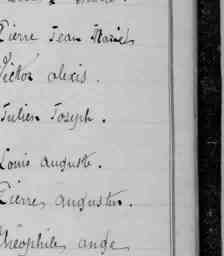 Pierre Jean Marie
Victor alexis.
Julien Joseph.
Louis auguste.
Pierre augustin.
Théophile ange